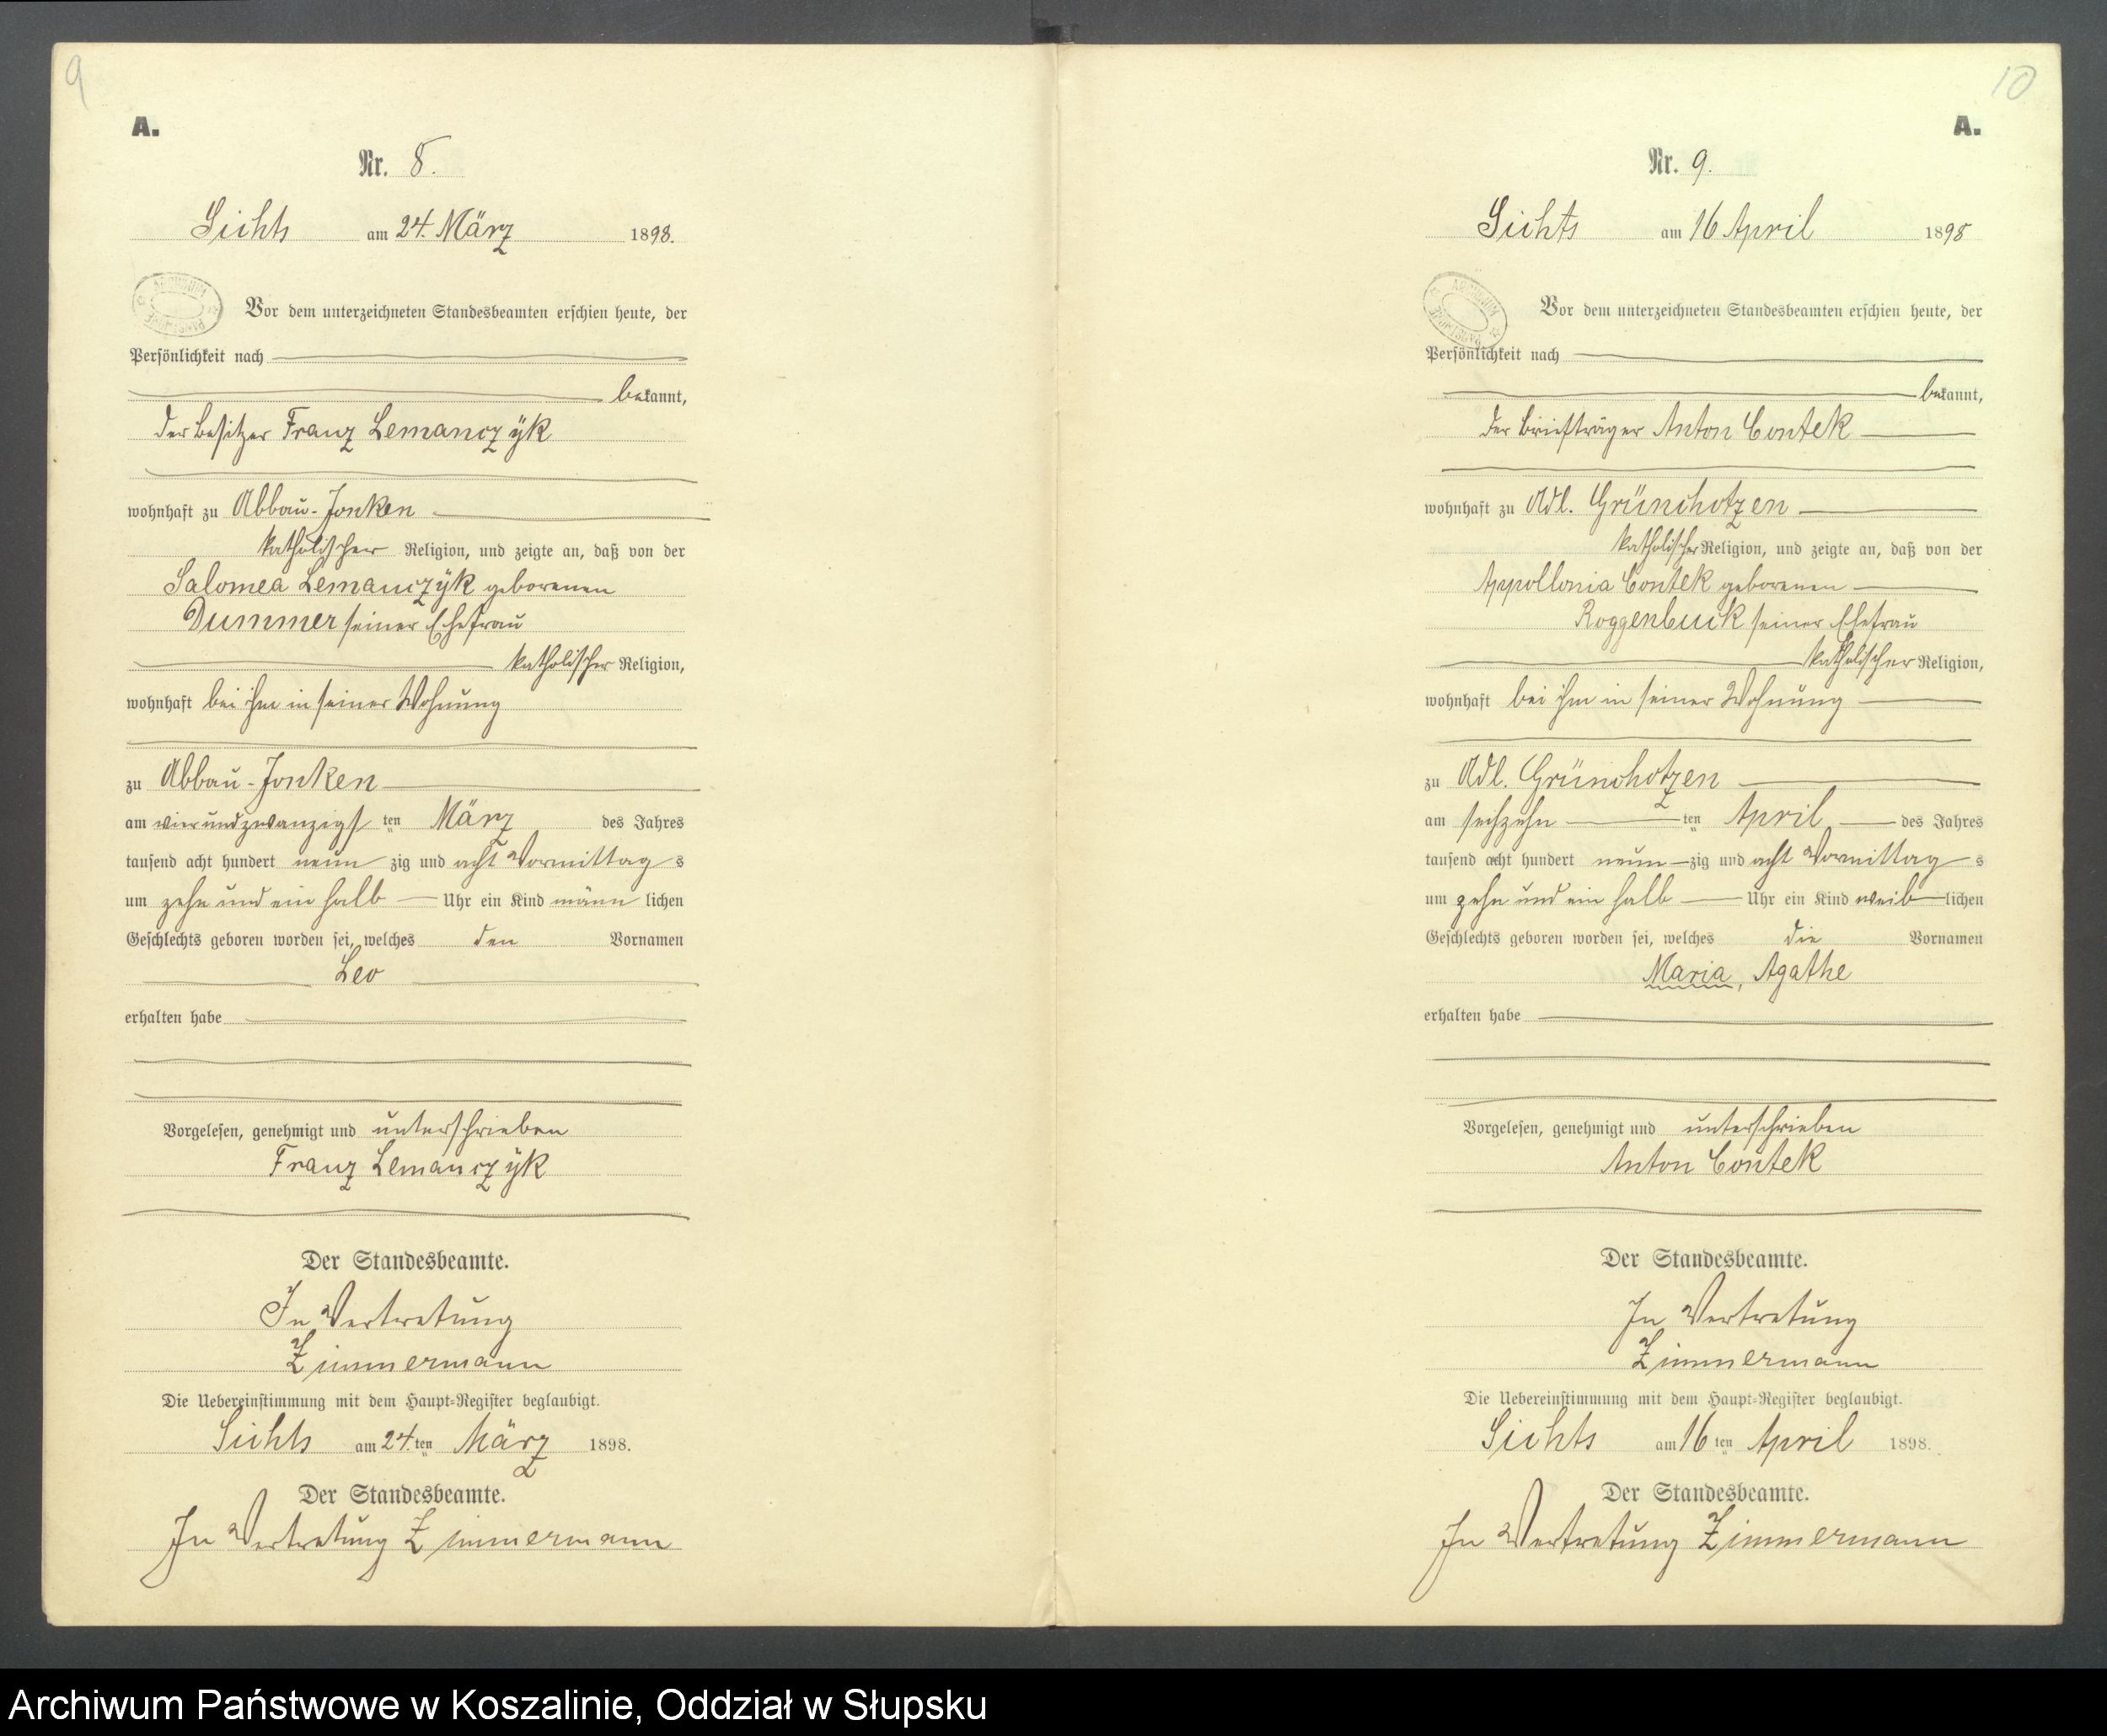 9
A.
Nr. 8.
Sichts am 24. März 1898.
ARCHIWUM PAŃSTWOWE
Vor dem unterzeichneten Standesbeamten erschien heute, der
Persönlichkeit nach
bekannt,
der Besitzer Franz Lemanczÿk
wohnhaft zu Abbau-Jonken
katholischer Religion, und zeigte an, daß von der
Salomea Lemanczÿk geborenen
Dummer seiner Ehefrau
katholischer Religion,
wohnhaft bei ihm in seiner Wohnung
zu Abbau-Jonken
am vierundzwanzigsten März des Jahres
tausend acht hundert neunzig und acht Vormittags
um zehn und ein halb Uhr ein Kind männlichen
Geschlechts geboren worden sei, welches den Vornamen
Leo
erhalten habe
Vorgelesen, genehmigt und unterschrieben
Franz Lemanczÿk
Der Standesbeamte.
In Vertretung
Zimmermann
Die Uebereinstimmung mit dem Haupt-Register beglaubigt.
Sichts am 24.ten März 1898.
Der Standesbeamte.
In Vertretung Zimmermann
10
A.
Nr. 9.
Sichts am 16 April 1898
ARCHIWUM PAŃSTWOWE
Vor dem unterzeichneten Standesbeamten erschien heute, der
Persönlichkeit nach
bekannt,
der Briefträger Anton Contek
wohnhaft zu Adl. Grünchotzen
katholischer Religion, und zeigte an, daß von der
Appollonia Contek geborenen
Roggenbuck seiner Ehefrau
katholischer Religion,
wohnhaft bei ihm in seiner Wohnung
zu Adl. Grünchotzen
am sechzehnten April des Jahres
tausend acht hundert neunzig und acht Vormittags
um zehn und ein halb Uhr ein Kind weiblichen
Geschlechts geboren worden sei, welches die Vornamen
Maria, Agathe
erhalten habe
Vorgelesen, genehmigt und unterschrieben
Anton Contek
Der Standesbeamte.
In Vertretung
Zimmermann
Die Uebereinstimmung mit dem Haupt-Register beglaubigt.
Sichts am 16ten April 1898.
Der Standesbeamte.
In Vertretung Zimmermann
Archiwum Państwowe w Koszalinie, Oddział w Słupsku